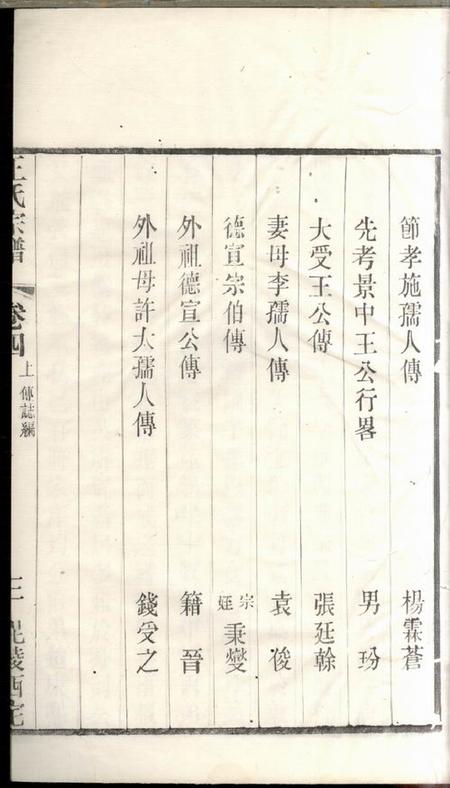 節孝施孺人傳 楊霖蒼
先考景中王公行畧 男玢
大受王公傳 張廷榦
妻母李孺人傳 袁俊
德宣宗伯傳 宗姪秉燮
外祖德宣公傳 籍晉
外祖母許太孺人傳 錢受之
王氏宗譜 卷四 上 傳誌編 三 毘陵西宅